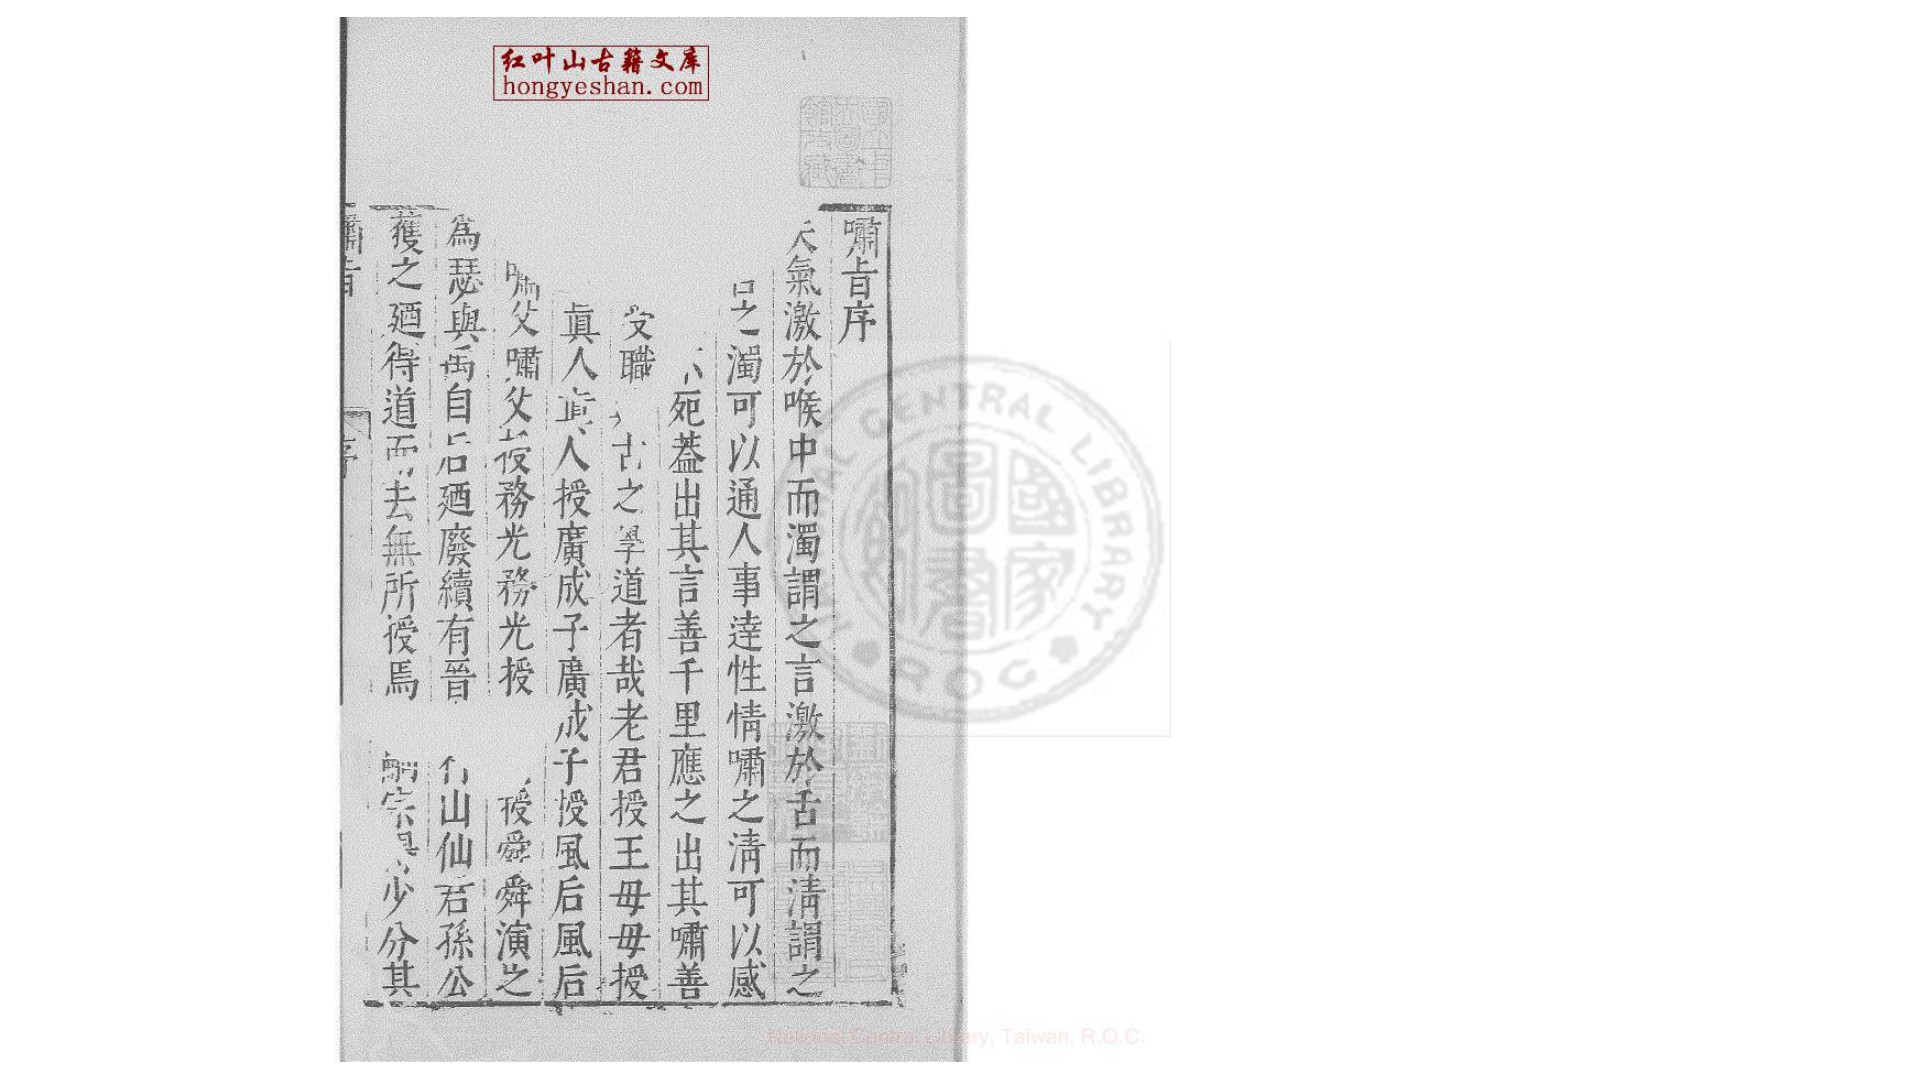 红叶山古籍文库
hongyeshan.com
嘯旨序
氣激於喉中而濁謂之言激於舌而淸謂之
之濁可以通人事達性情嘯之淸可以感
死葢出其言善千里應之出其嘯善
受職 古之學道者哉老君授王母母授
眞人眞人授廣成子廣成子授風后風后
嘯父嘯父授務光務光授 授舜舜演之
為琴與禹自后廼廢續有晉 山仙君孫公
獲之廼得道而去無所授焉 嗣宗得少分其
嘯旨 序
CENTRAL LIBRARY
R.O.C
國家圖書館
National Central Library, Taiwan, R.O.C.